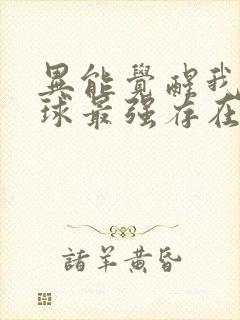 異能覺醒我
球最强存在
諸羊黄昏